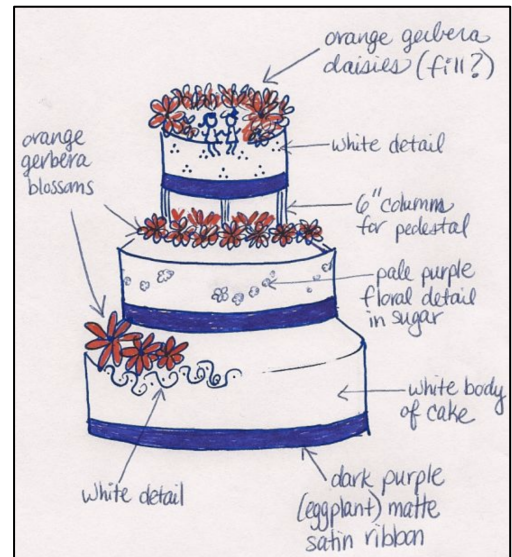 orange gerbera
daisies (fill?)
white detail
orange
gerbera
blossoms
6" columns
for pedestal
pale purple
floral detail
in sugar
white body
of cake
white detail
dark purple
(eggplant) matte
satin ribbon